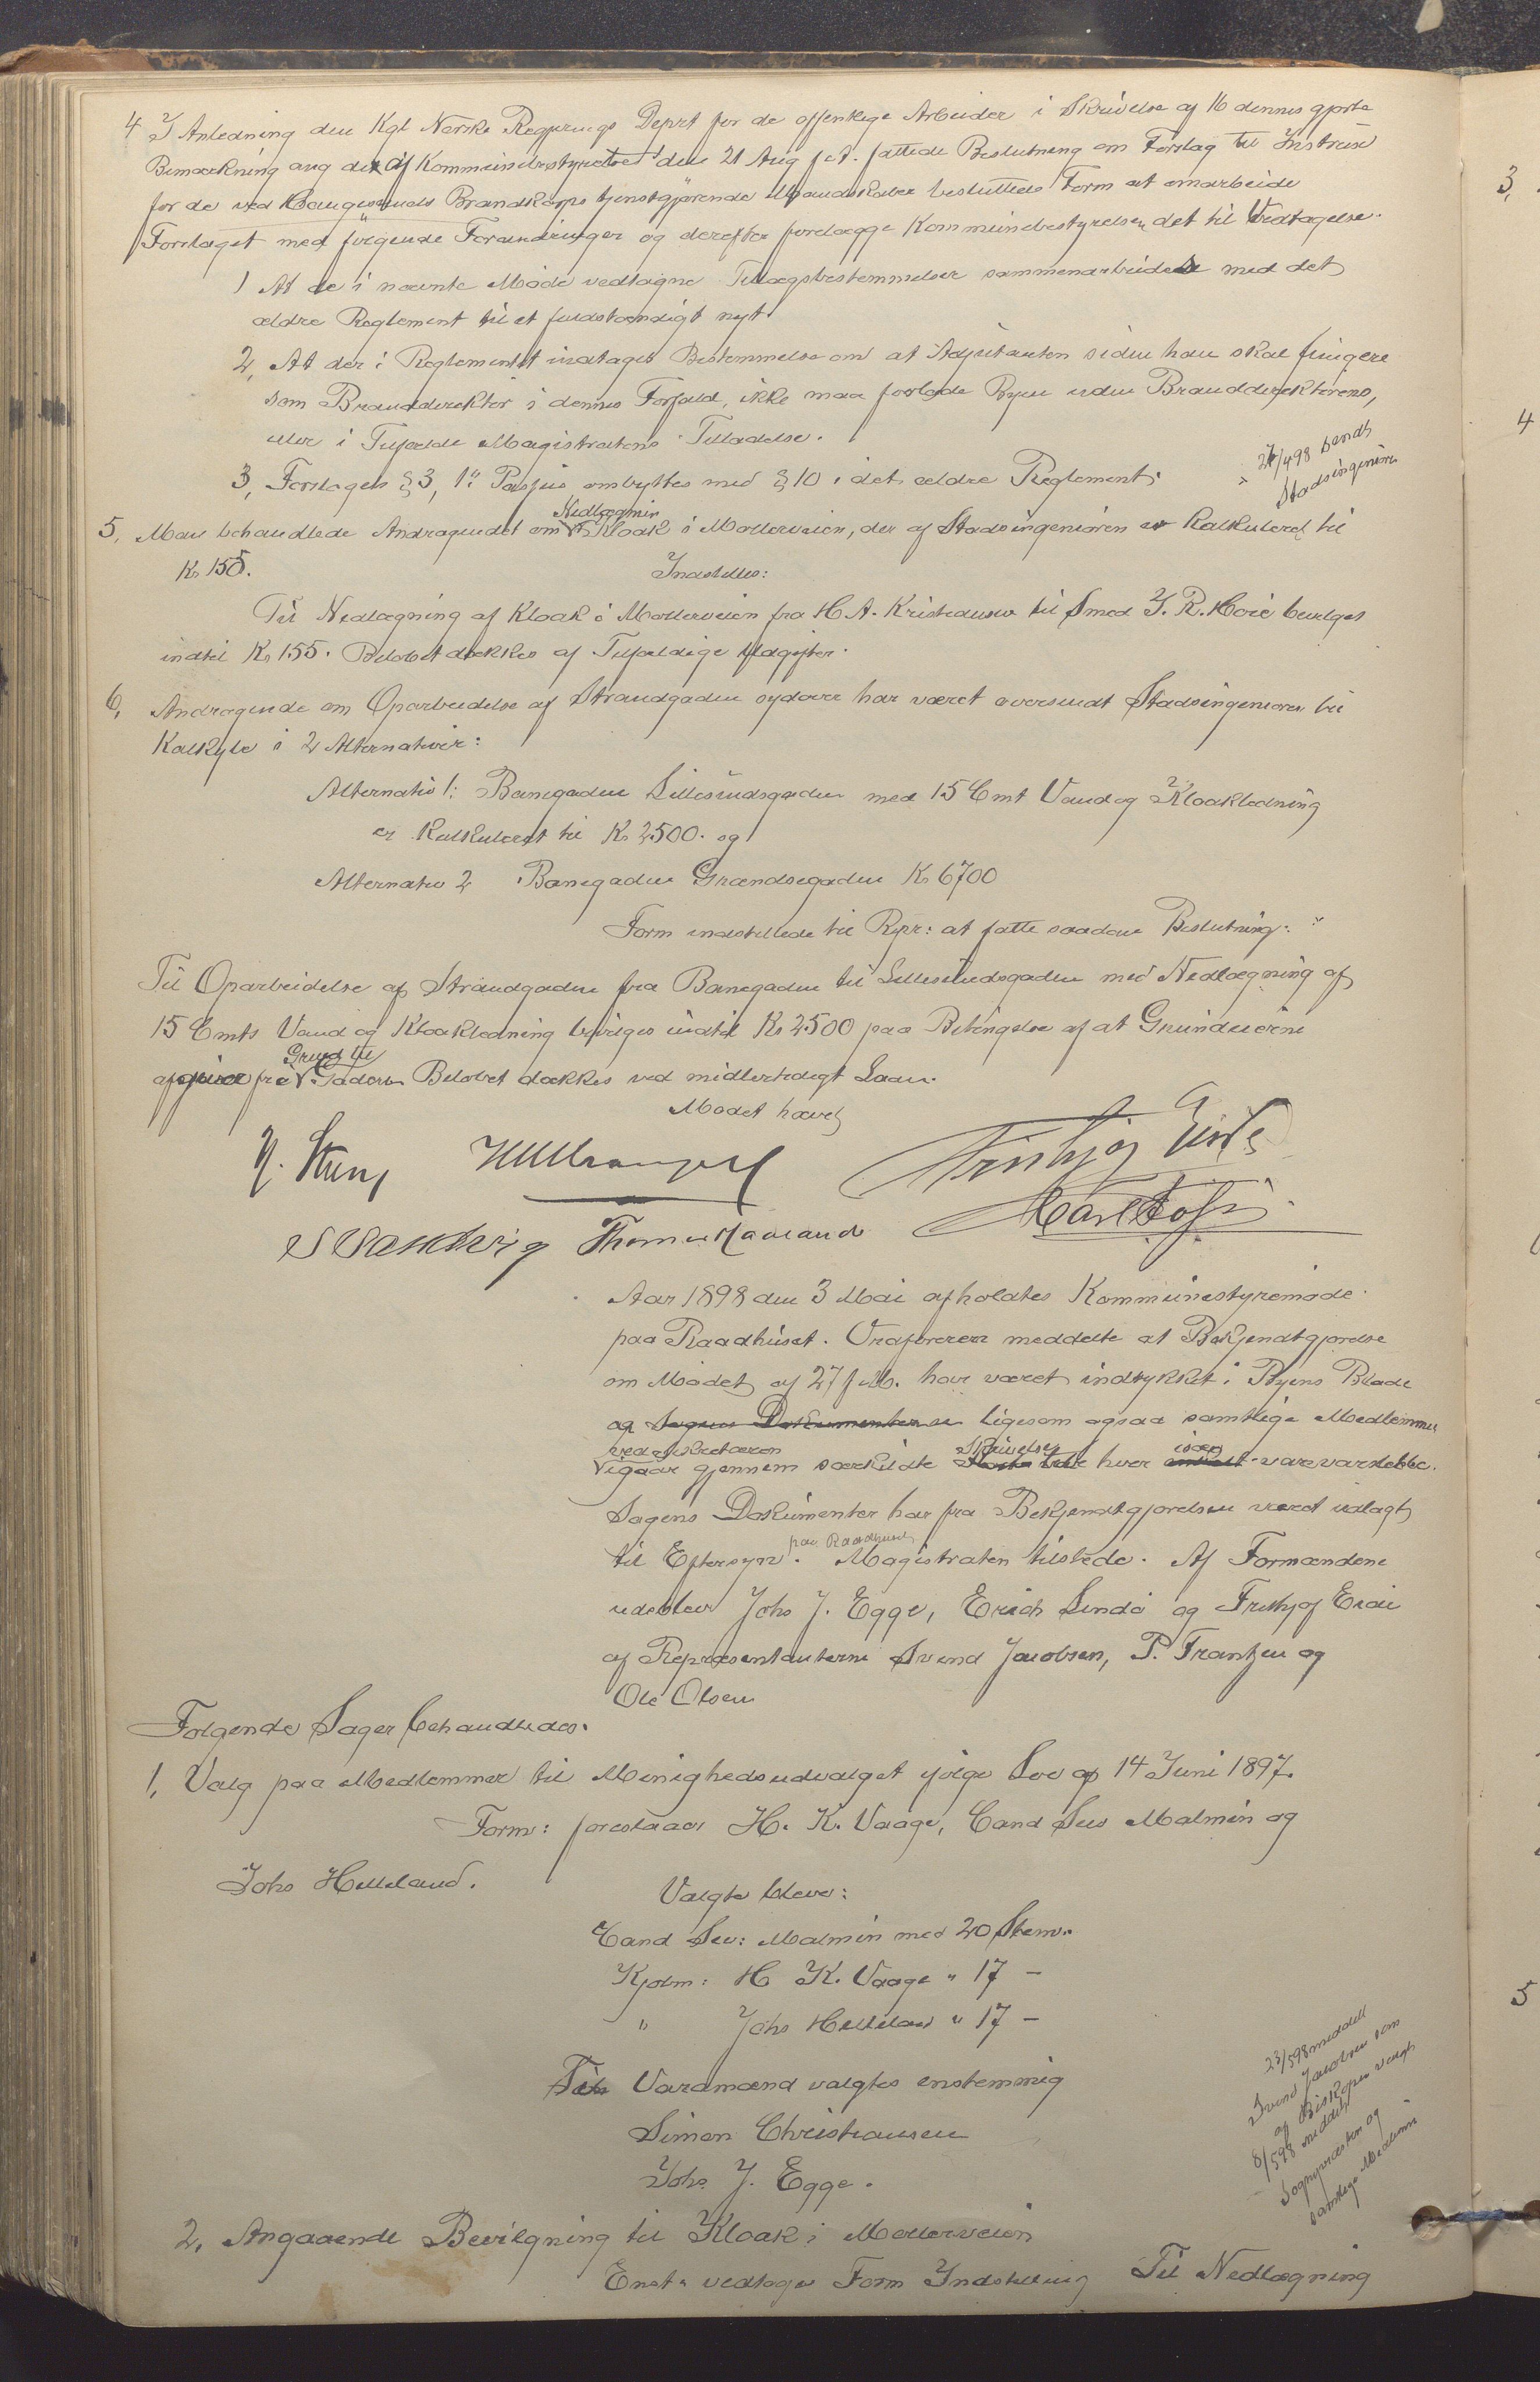 4 I Anledning den Kgl Norske Regjerings Deprt for de offentlige Arbeider i Skrivelse af 16 dennes gjorte
Bemærkning ang det af Kommunebestyrelsen den 21 Aug f.A. fattede Beslutning om Forslag til Instrux
for de ved Haugesunds Brandkorps tjenstgjørende Mandskaber besluttede Form at omarbeide
Forslaget med følgende Forandringer og derefter forelægge Kommunebestyrelsen det til Vedtagelse.
1 At de i nævnte Møde vedtagne Tillægsbestemmelser sammenarbeides med det
ældre Reglement til et fuldstændigt nyt.
2, At der i Reglementet indtages Bestemmelse om at Adjutanten siden han skal fungere
som Branddirektør i dennes Forfald, ikke maa forlade Byen uden Branddirektørens,
eller i Tilfælde Magistratens Tilladelse.
3, Forslagets § 3, 1ste Passus ombyttes med § 10 i det ældre Reglement.
27/4 98 sendt
Stadsingeniøren
5, Man behandlede Andragendet om Nedlægnin Kloak i Møllerveien, der af Stadsingeniøren er kalkuleret til
Kr 155.
Indstilles:
Til Nedlægning af Kloak i Møllerveien fra H A. Kristensen til Smed J. R. Høie bevilges
indtil Kr 155. Beløbet dækkes af Tilfældige Udgifter.
6, Andragende om Oparbeidelse af Strandgaden sydover har været oversendt Stadsingeniøren til
Kalkyle i 2 Alternativer:
Alternativ 1: Banegaden Lillesundsgaden med 15 Cmt Vand og Kloakledning
er kalkuleret til Kr 2500. og
Alternativ 2 Banegaden Grændsegaden Kr 6700
Form indstillede til Repr: at fatte saadan Beslutning:
Til Oparbeidelse af Strandgaden fra Banegaden til Lillesundsgaden med Nedlægning af
15 Cmts Vand og Kloakledning bevilges indtil Kr 2500 paa Betingelse af at Grundeierne
afgiver fri Grund til Gaden. Beløbet dækkes ved midlertidigt Laan.
Mødet hævet
Thomas Haaland
Aar 1898 den 3 Mai afholdtes Kommunestyremøde
paa Raadhuset. Ordføreren meddelte at Bekjendtgjørelse
om Mødet af 27 f.M. har været indrykket i Byens Blade
og Sagens Dokumenter ligesom ogsaa samtlige Medlemmer
ved Sekretæren
igaar gjennem særskildte Skrivelser hver især var varslet etc.
Sagens Dokumenter har fra Bekjendtgjørelsen været udlagt
til Eftersyn paa Raadhuset. Magistraten tilstede. Af Formændene
udeblev Johs J. Egge, Erich Lindø og Frithjof Eide
af Repræsentanterne Svend Jacobsen, P. Frantzen og
Ole Olsen
Følgende Sager behandledes.
1, Valg paa Medlemmer til Menighedsudvalget ifølge Lov af 14 Juni 1897.
Form: foreslaaer H. K. Vaage, Cand Sev Malmin og
Johs Helleland.
Valgte blev:
Cand Sev: Malmin med 20 Stem.
Kjøbm: H K. Vaage " 17 –
" Johs Helleland " 17 –
Til Varamænd valgtes enstemmig
Simon Christiansen
Johs J. Egge.
23/5 98 meddelt
Svend Jacobsen som
af Biskopen valgt
8/5 98 meddelt
Sognepræsten og
samtlige Medlemmer
2, Angaaende Bevilgning til Kloak i Møllerveien
Enst. vedtoges Form Indstilling Til Nedlægning
3,
4
5